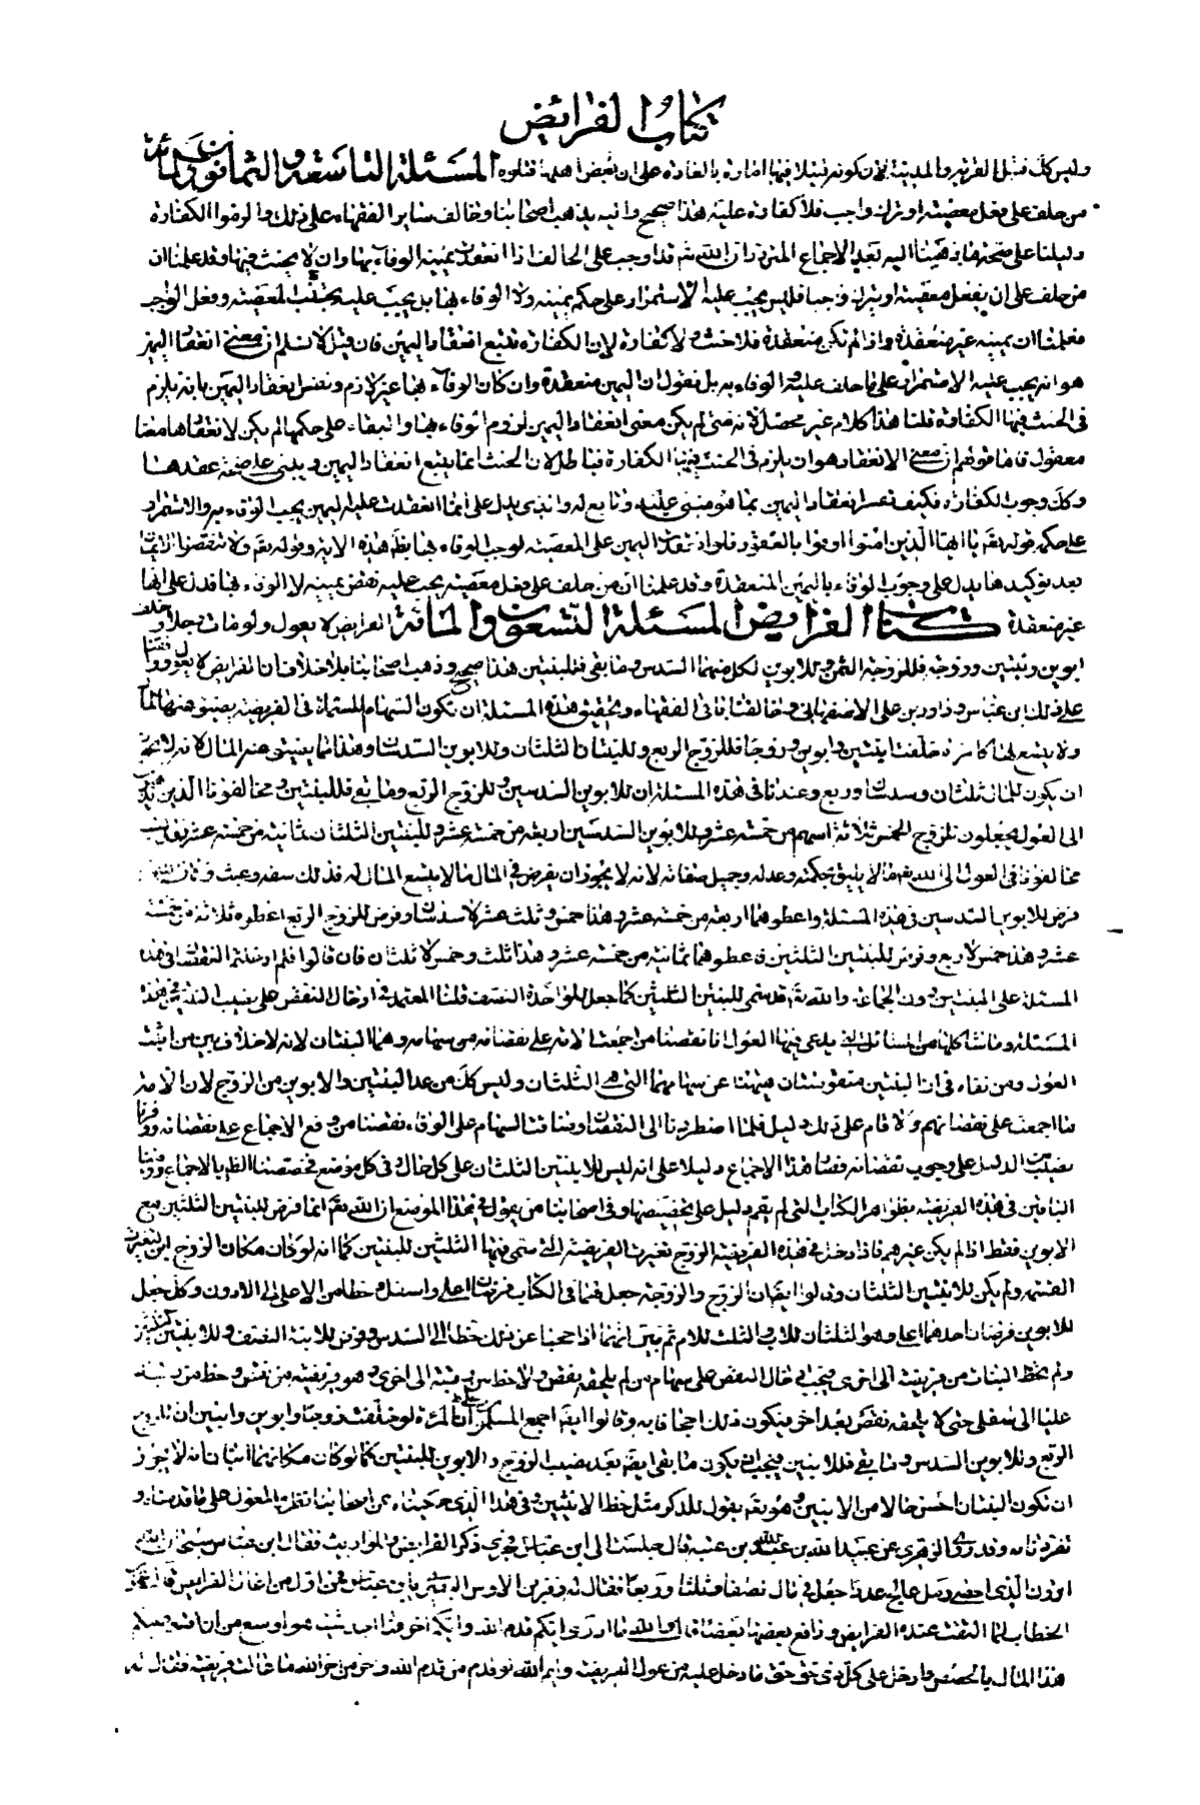 كتاب الفرائض
وليس كل قتيل القرية والمدينة لان كونه قتيلا فيها امارة بالعادة على ان بعض اهلها قتلوه المسئلة التاسعة والثمانون والمائة
من حلف على فعل معصية او ترك واجب فلا كفارة عليه هذا صحيح واليه يذهب اصحابنا وخالف ساير الفقهاء على ذلك والزموا الكفارة
دليلنا على صحة ما ذهبنا اليه بعد الاجماع المتردد ان الله تعالى قد اوجب على الحالف اذا انعقدت يمينه الوفاء بها وان لا يحنث فيها وقد علمنا ان
من حلف على ان يفعل معصية او يترك واجبا فليس يجب عليه الاستمرار على حكم يمينه ولا الوفاء بها بل يجب عليه تجنب المعصية وفعل الواجب
فعلمنا ان يمينه غير منعقدة واذا لم تكن منعقدة فلا حنث ولا كفارة لان الكفارة تتبع انعقاد اليمين فان قيل لا نسلم ان معنى انعقاد اليمين
هو انه يجب عليه الاستمرار على ما حلف عليه والوفاء به بل نقول ان اليمين منعقدة وان كان الوفاء بها غير لازم ونفسر انعقاد اليمين بانه يلزم
في الحنث فيها الكفارة قلنا هذا كلام غير محصل لانه متى لم يكن معنى انعقاد اليمين لزوم الوفاء بها والبقاء على حكمها لم يكن لانعقادها معنا
معقول فاما قولهم ان معنى الانعقاد هو ان يلزم في الحنث فيها الكفارة فباطل لان الحنث انما يتبع انعقاد اليمين ويبنى على صحة عقدها
وكك وجوب الكفارة فكيف نفسر انعقاد اليمين بما هو مبنى عليه وتابع له والذي يدل على ان ما انعقدت عليه اليمين يجب الوفاء به والاستمرار
على حكمه قوله تعم يا ايها الذين امنوا اوفوا بالعقود فلو انعقدت اليمين على المعصية لوجب الوفاء بها بظاهر هذه الاية وقوله تعم ولا تنقضوا الايمان
بعد توكيدها يدل على وجوب الوفاء باليمين المنعقدة وقد علمنا ان من حلف على فعل معصية يجب عليه نقض يمينه لا الوفاء بها فدل على انها
غير منعقدة كتاب الفرائض المسئلة التسعون والمائة الفرايض لا يعول ولو مات رجلا وخلف
ابوين وبنتين وزوجة فللزوجة الثمن وللابوين لكل منهما السدس وما بقى فللبنتين هذا صحيح وذهب اصحابنا بلا خلاف ان الفرايض لا يعول ووافقنا
على ذلك ابن عباس وداود بن على الاصفهانى وخالفنا باقى الفقهاء وتحقيق هذه المسئلة ان تكون السهام المسماة في الفريضة يضيق عنها المال
ولا يتسع لها كامرأة خلفت ابنتين وابوين وزوجا فللزوج الربع وللبنتان الثلثان وللابوين السدسان وهذا مما يضيق عنه المال لانه لا يجوز
ان يكون للمال ثلثان وسدسان وربع وعندنا في هذه المسئلة ان للابوين السدسين وللزوج الربع وما بقى فللبنتين ومخالفونا الذين يذهبون
الى العول يجعلون للزوج الخمس ثلاثة اسهم من خمسة عشر وللابوين السدسين اربعة من خمسة عشر وللبنتين الثلثان ثمانية من خمسة عشر فينسب
مخالفونا في العول الى الله تعم ما لا يليق بحكمته وعدله وجميل صفاته لانه لا يجوز ان يفرض في المال ما لا يتسع المال له فذلك سفه وعبث
فرض للابوين السدسين في هذه المسئلة واعطوهما اربعة من خمسة عشر وهذا خمس وثلث عشر لا سدسان وفرض للزوج الربع اعطوه ثلاثة من خمسة
عشر وهذا خمس لا ربع وفرض للبنتين الثلثين فاعطوهما ثمانية من خمسة عشر وهذا ثلث وخمس لا ثلثان فان قالوا فلم ادخلتم النقصان في هذه
المسئلة على البنتين دون الجماعة والله تعم قد سمى للبنتين الثلثين كما جعل للواحدة النصف قلنا المعتمد في ادخال النقص على نصيب البنتين في هذه
المسئلة وما شاكلها من المسائل التي يدعى فيها العول انا نقصنا من اجمعت الامة على نقصانه من سهامه وهما البنتان لانه لا خلاف بين من اثبت
العول ومن نفاه في ان البنتين منقوصتان ههنا عن سهامهما التي هي الثلثان وليس كك من عدا البنتين والابوين من الزوج لان الامة
ما اجمعت على نقصانهم ولا قام على ذلك دليل فلما اضطررنا الى النقصان وضاقت السهام على الوفاء نقصنا من وقع الاجماع على نقصانه ووفرنا
نصيب الدليل على وجوب نقصانه فصار هذا الاجماع دليلا على انه ليس للابنتين الثلثان على كل حال وفي كل موضع فخصصنا الظاهر بالاجماع ووفينا
الباقين في هذه الفريضة بظواهر الكتاب التي لم يقم دليل على تخصيصها وفي اصحابنا من يقول في هذا الموضع ان الله تعم انما فرض للبنتين الثلثين مع
الابوين فقط اذا لم يكن غيرهم فاذا دخل في هذه الفريضة الزوج تغيرت الفريضة التي سمى فيها الثلثين للبنتين كما انه لو كان مكان الزوج ابن لتغيرت
القسمة ولم يكن للابنتين الثلثان وقالوا ايضا ان الزوج والزوجة جعل لهما في الكتاب فرضان اعلى واسفل وحطا من الاعلى الى الادون وكك جعل
للابوين فرضان احدهما اعلى وهو الثلثان للاب والثلث للام ثم بين انهما اذا حجبا عن ذلك حطا الى السدس وفرض للابنة النصف وللابنتين
ولم يحط البنات من فريضة الى اخرى فيجب ادخال النقص على سهام من لم يلحقه نقص ولا حط من رتبة الى اخرى
عليا الى سفلى حتى لا يلحقه نقص بعد اخر فيكون ذلك اجحافا به وقالوا ايضا اجمع المسلمون على ان المرأة لو خلفت زوجا وابوين وابنين ان للزوج
الربع وللابوين السدس وما بقى فللابنين فيجب ان يكون ما بقى ايضا بعد نصيب الزوج والابوين للبنتين كما لو كان مكانهما ابنان لانه لا يجوز
ان تكون البنتان احسن حالا من الابنين وهو تعم يقول للذكر مثل حظ الانثيين وفي هذا الذي حكيناه عن اصحابنا نظر والمعول على ما قدمناه و
تفردنا به وقد روى الزهري عن عبيد الله بن عبد الله بن عتبة قال جلست الى ابن عباس فجرى ذكر الفرايض والمواريث فقال ابن عباس سبحان الله
اترون الذي احصى رمل عالج عددا جعل في مال نصفا وثلثا وربعا فقال له زفر بن الاوس البصري يا بن عباس فمن اول من اعال الفرايض قال عمر بن
الخطاب لما التفت عنده الفرايض ودافع بعضها بعضا قال والله ما ادري ايكم قدم الله وايكم اخر فما اجد شيئا هو اوسع من ان اقسم عليكم
هذا المال بالحصص وادخل على كل ذي حق حق ما دخل عليه من عول الفريضة وايم الله لو قدم من قدم الله واخر من اخر الله ما عالت فريضة فقال له